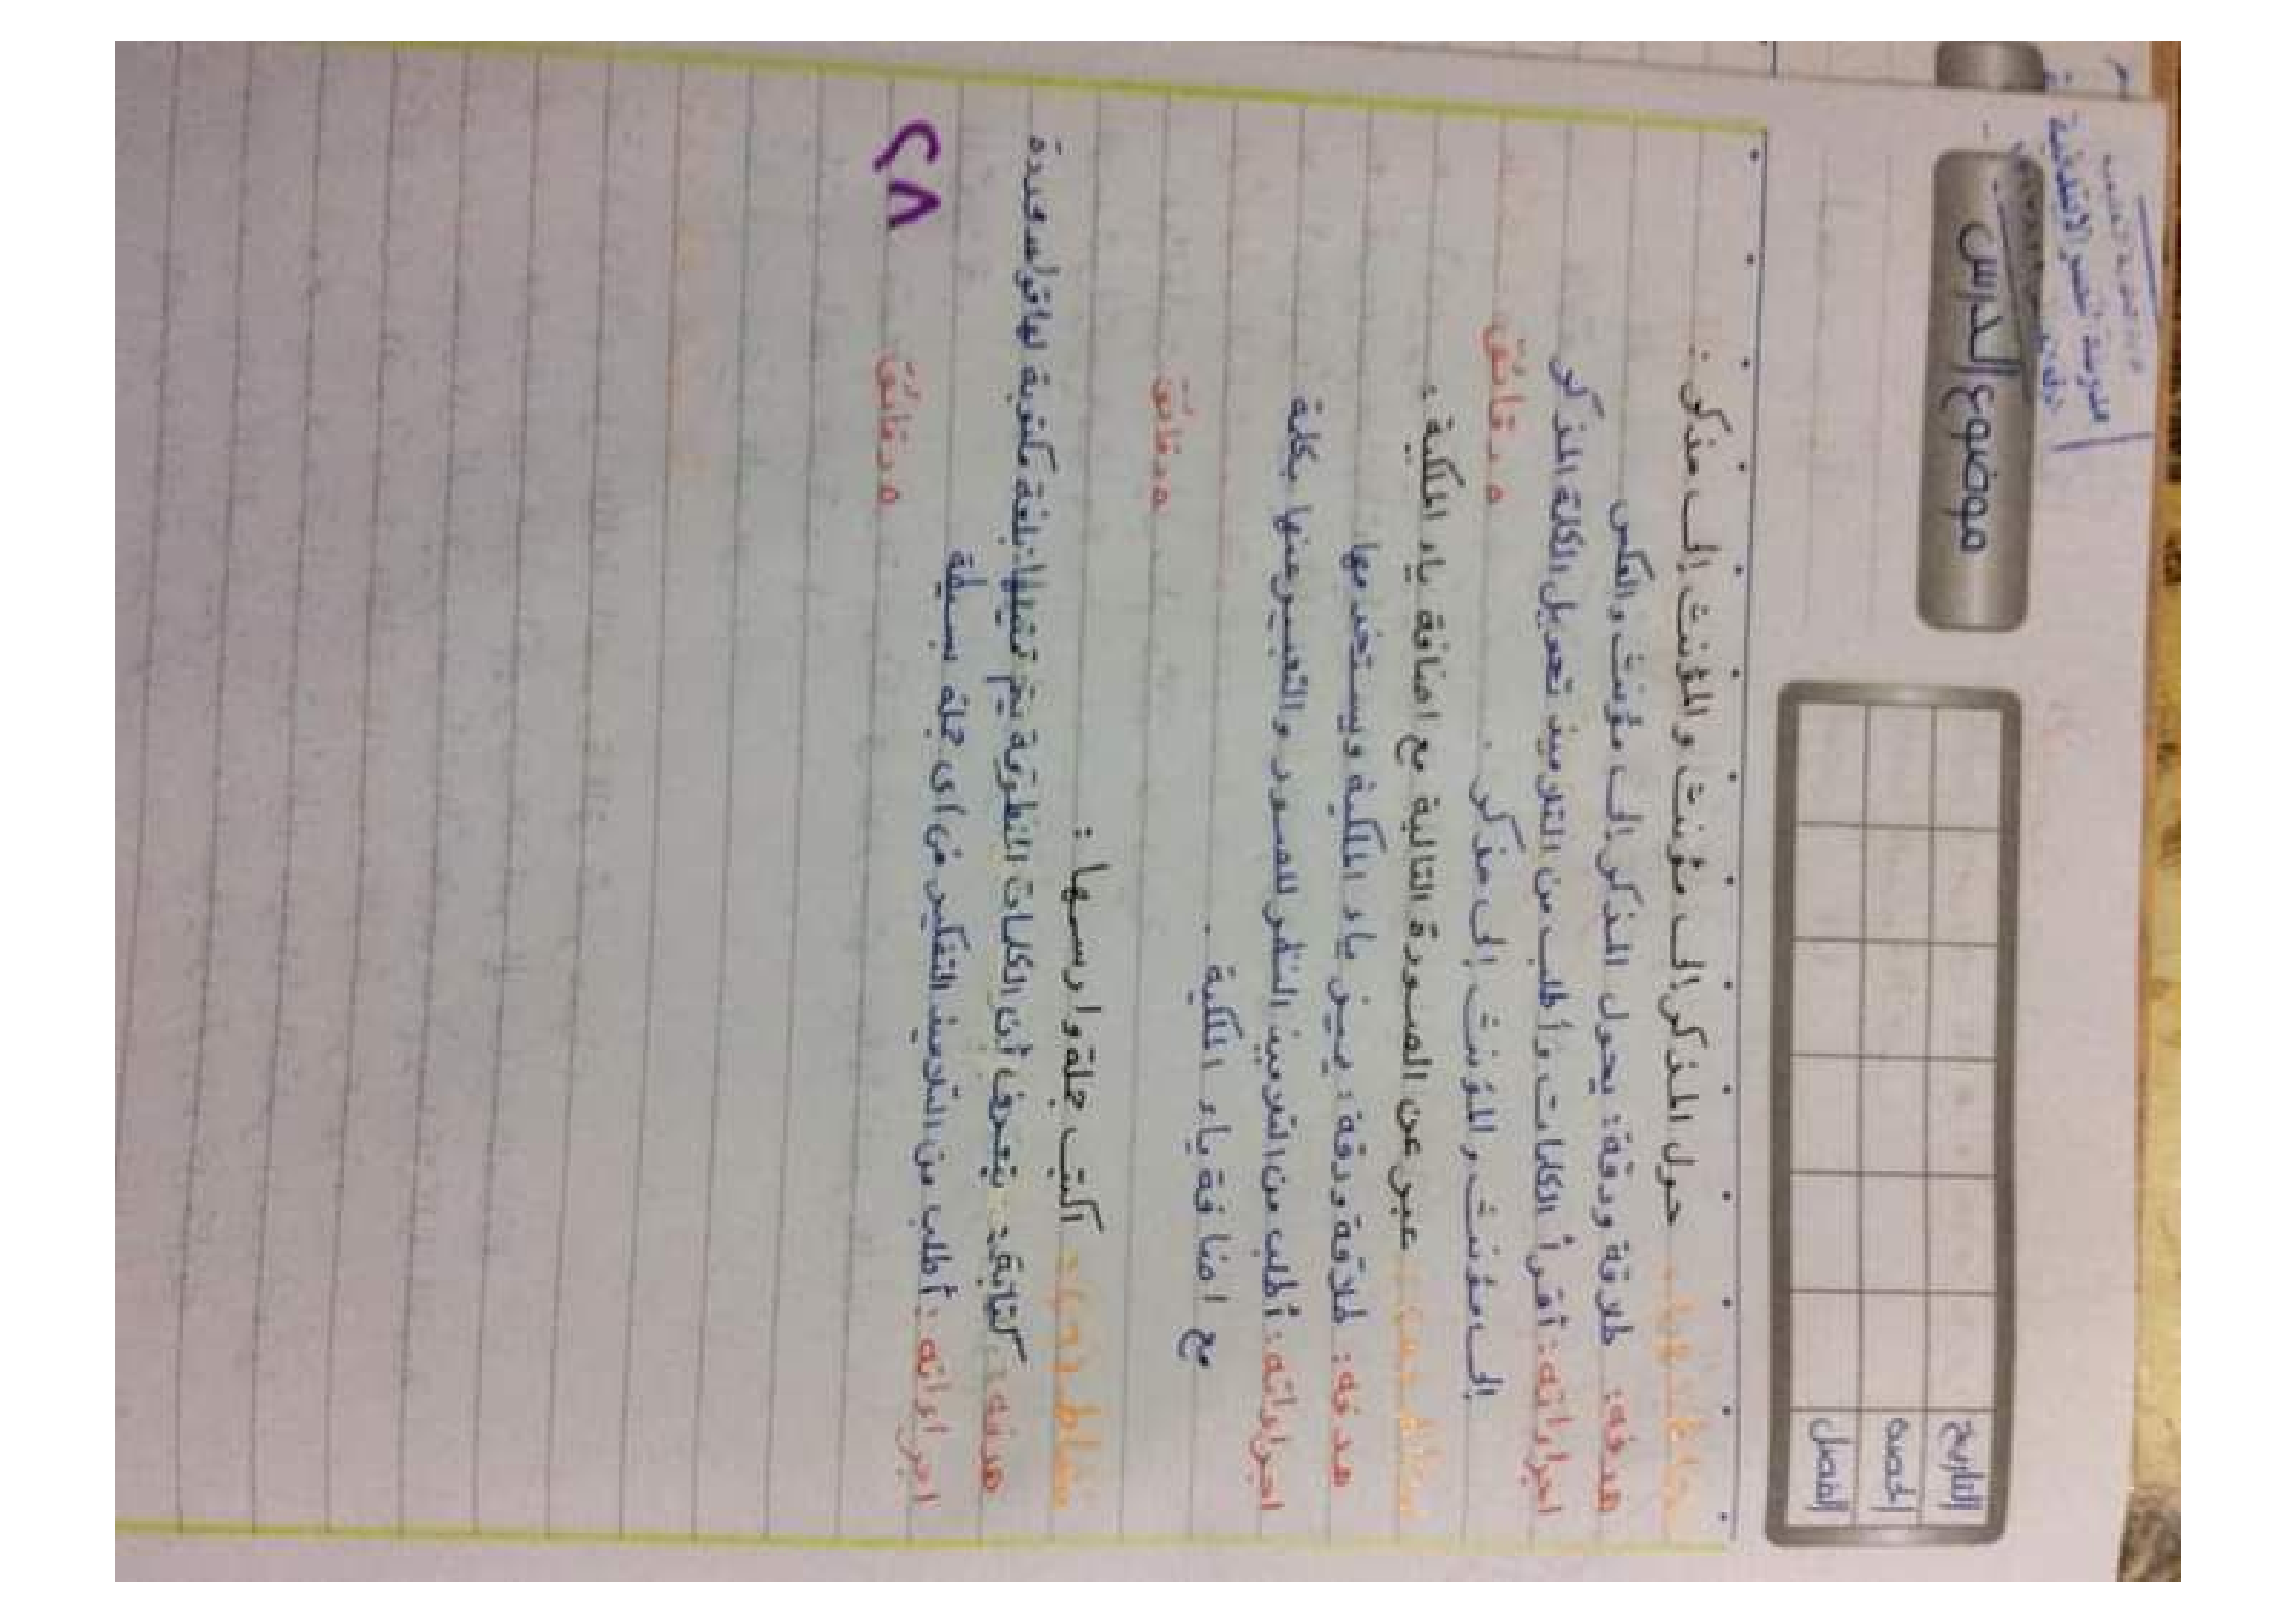 مدرسة النصر الابتدائية
موضوع الدرس
التاريخ
الحصة
الفصل
حول المذكر إلى مؤنث والمؤنث إلى مذكر :
هدفه : طلاقة ودقة : يحول المذكر إلى مؤنث والعكس
اجراءاته : أقرأ الكلمات وأطلب من التلاميذ تحويل الكلمة المذكر
إلى مؤنث والمؤنث إلى مذكر .
٥ دقائق
عبر عن الصورة التالية مع اضافة ياء الملكية :
هدفه : طلاقة ودقة : يميز ياء الملكية ويستخدمها
اجراءاته : أطلب من التلاميذ النظر للصور والتعبير عنها بكلمة
مع اضافة ياء الملكية .
٥ دقائق
نشاط اكتب جملة وارسمها :
هدفه : كتابة : يتعرف أن الكلمات المنطوقة يتم تمثيلها بلغة مكتوبة لها قواعد محددة
اجراءاته : أطلب من التلاميذ التفكير في أى جملة بسيطة
٥ دقائق
٢٨